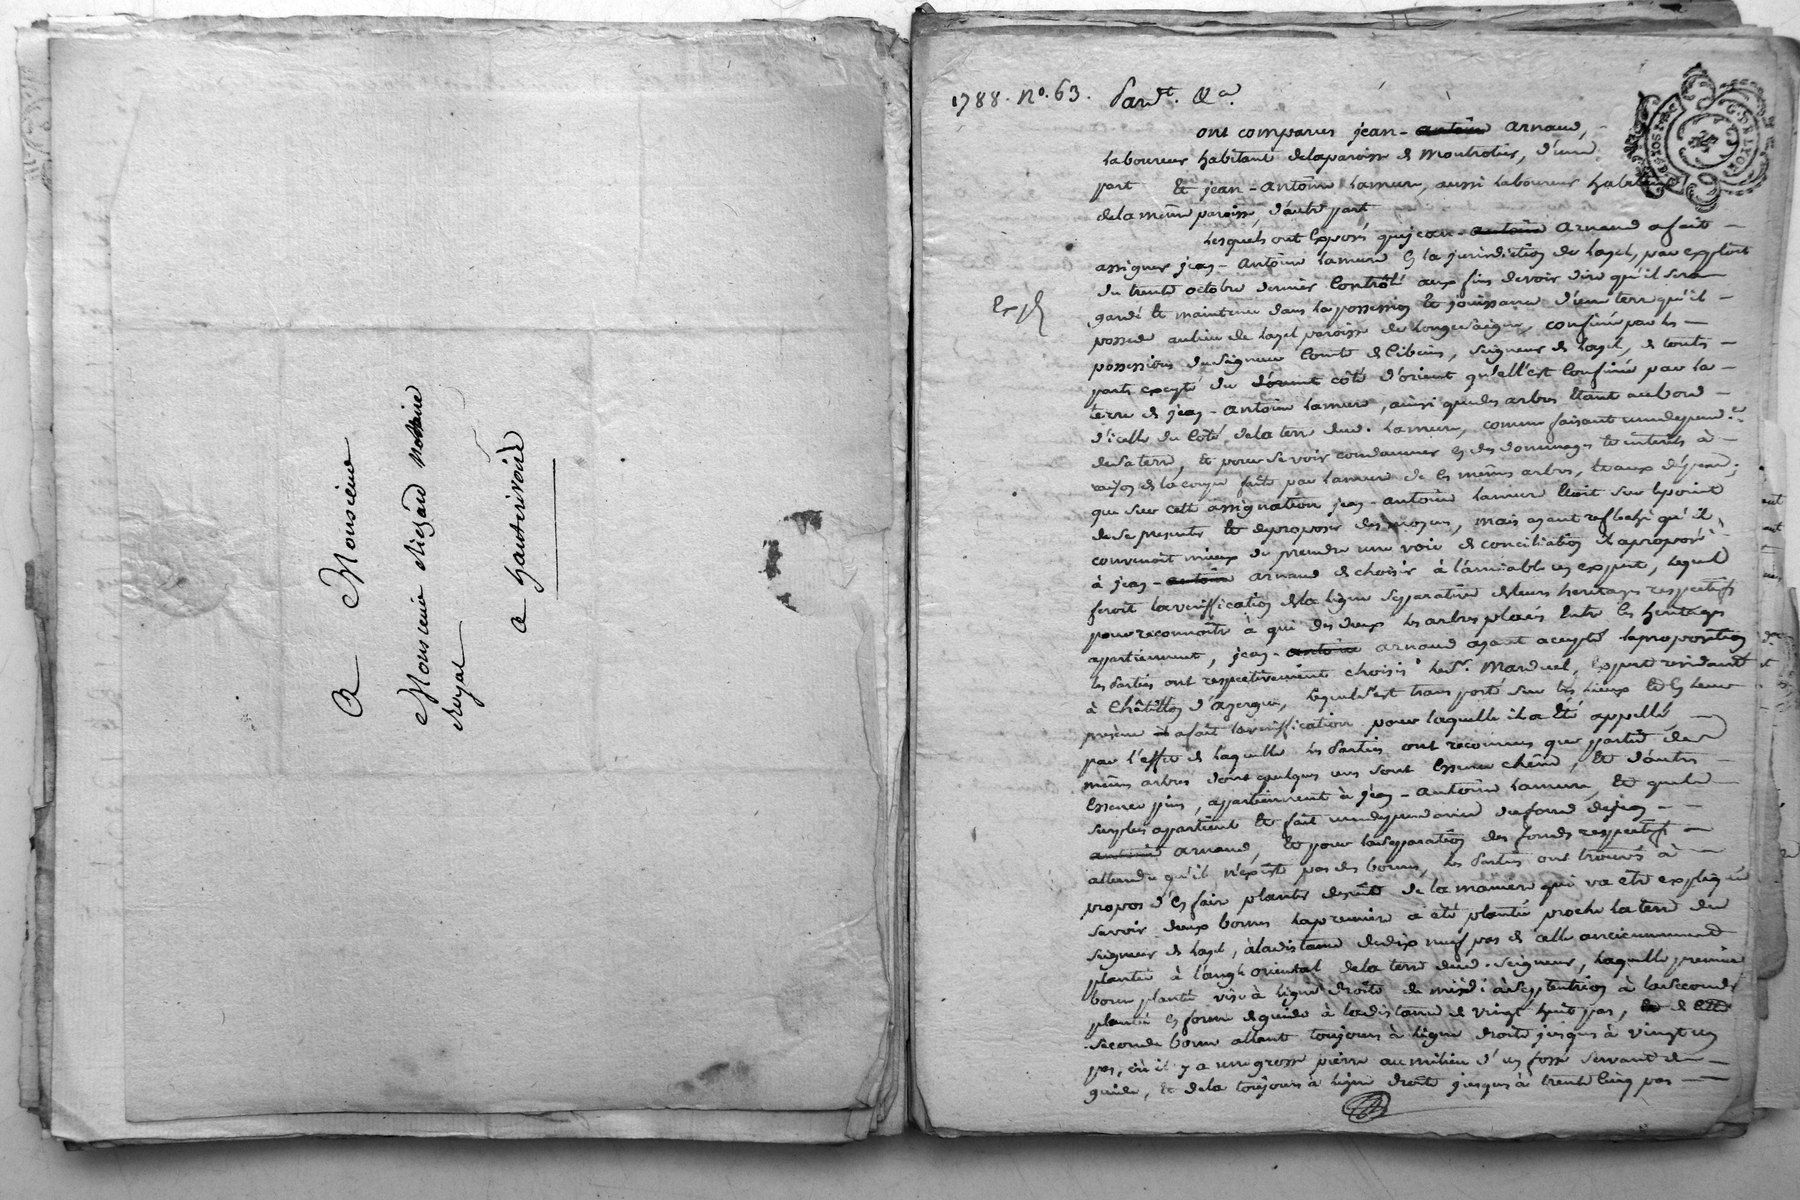 A Monsieur
Monsieur Riczard Notaire
Royal
a hauterivoire
1788. No. 63. Pardt. &a.
ont comparus jean - antoine arnaud,
Laboureur habitant delaparoisse de Montrotier, d'une
part Et jean - antoine Lamure, aussi Laboureur habitant
dela même paroisse, d'autre part
Lesquels ont Exposés que jean - antoine arnaud afait
assigner jean - antoine Lamure En la jurisdiction de hazel, par exploit
du trente octobre dernier Controllé aux fins devoir dire qu'il sera
gardé Et maintenu dans la possession Et jouissance d'une terre qu'il
possede aulieu de hazel paroisse de Longesaigne, confinée par les
possessions duseigneur Comte de , seigneur de hazel, de touts
parts excepté du côté d'orient qu'elle est Confinée par la
terre de jean - antoine Lamure, ainsi que des arbres Etant aubord
d'icelle du Coté dela terre dud. Lamure, comme faisant unedependce
desaterre, Et pour sevoir condamner En des dommages Et interets à
raison de la coupe faite par Lamure de Ces mêmes arbres, Et aux dépens;
que sur cette assignation jean - antoine Lamure Etoit sur lepoint
de se presenter Et deproposer desmoyens, mais ayant reflechi qu'il
convenoit mieux de prendre une voie de conciliation il aproposé
à jean - antoine arnaud de choisir à l'amiable un expert, lequel
feroit laveriffication dela ligne separative deleurs heritages respectifs
pour reconnoitre à qui des deux les arbres placés Entre les heritages
appartiennent, jean - antoine arnaud ayant accepté laproposition
les Parties ont respectivement choisi lesr. Marduel, Expert residant
à Châtillon d'azergue, lequel s'est transporté sur les lieux Et En leur
présence afait laveriffication pour laquelle il a Eté appellé,
par l'effet de laquelle les Parties ont reconnus que partie des
mêmes arbres dont quelques uns sont Essence chêne, Et d'autres
Essence pin, appartiennent à jean - antoine Lamure, Et que le
surplus appartient Et fait unedependance dufond dejean
antoine arnaud, Et pour laseparation des fonds respectifs
attendu qu'il n'existe pas des bornes, les Parties ont trouvés à
propos d'En faire planter desuite de la maniere qui va etre expliquée
savoir deux bornes lapremiere a été plantée proche la terre du
seigneur de hazel, àladistance dedix neuf pas de celle anciennement
plantée à l'angle oriental dela terre dud. seigneur, laquelle premiere
borne plantée vise à ligne droite de midi àseptentrion à laseconde
plantée En forme deguide à ladistance de vingt huit pas,
seconde borne allant toujours à ligne droite jusques à vingt un
pas, où il y a une grosse pierre au milieu d'un fossé servant de
guide, Et dela toujours à ligne droite jusques à trente Cinq pas